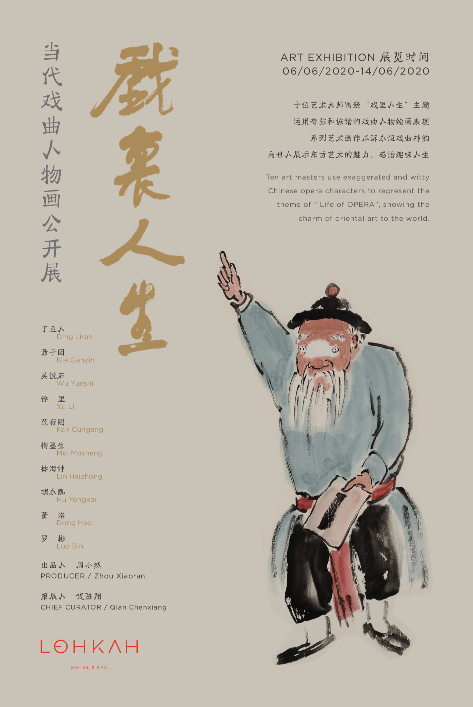 当代戏曲人物画公开展
戲裏人生
ART EXHIBITION 展览时间
06/06/2020-14/06/2020
十位艺术大师围绕“戏里人生”主题
运用夸张和诙谐的戏曲人物绘画表现
向世人展示东方艺术的魅力，感悟趣味人生
Ten art masters use exaggerated and witty
Chinese opera characters to represent the
theme of " Life of OPERA", showing the
charm of oriental art to the world.
丁立人
Ding Liren
聂干因
Nie Ganyin
吴悦石
Wu Yueshi
徐 里
Xu Li
范存刚
Fan Cungang
梅墨生
Mei Mosheng
林海钟
Lin Haizhong
胡永凯
Hu Yongkai
董 浩
Dong Hao
罗 彬
Luo Bin
出品人 周小然
PRODUCER / Zhou Xiaoran
策展人 钱陈翔
CHIEF CURATOR / Qian Chenxiang
LOHKAH
HOTEL & SPA